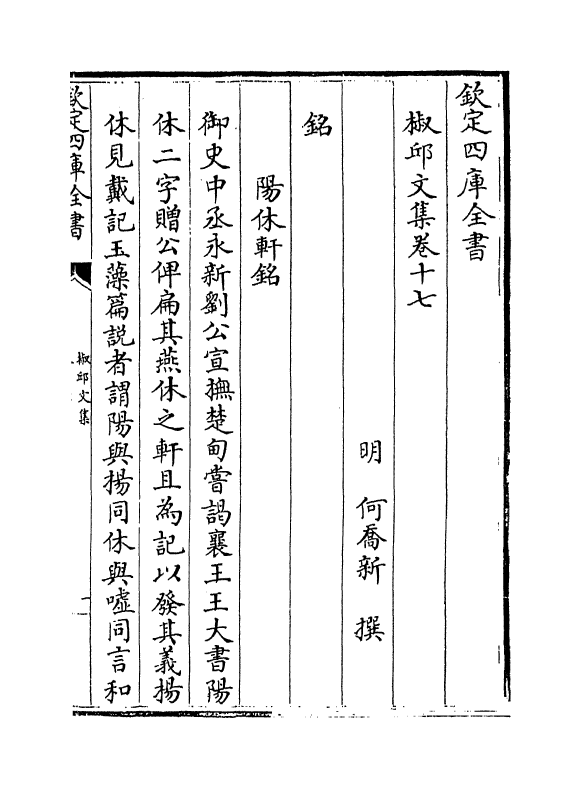 欽定四庫全書
椒邱文集卷十七
明 何喬新 撰
銘
陽休軒銘
御史中丞永新劉公宣撫楚甸嘗謁襄王王大書陽
休二字贈公俾扁其燕休之軒且為記以發其義揚
休見戴記玉藻篇説者謂陽與揚同休與噓同言和
欽定四庫全書
椒邱文集
一